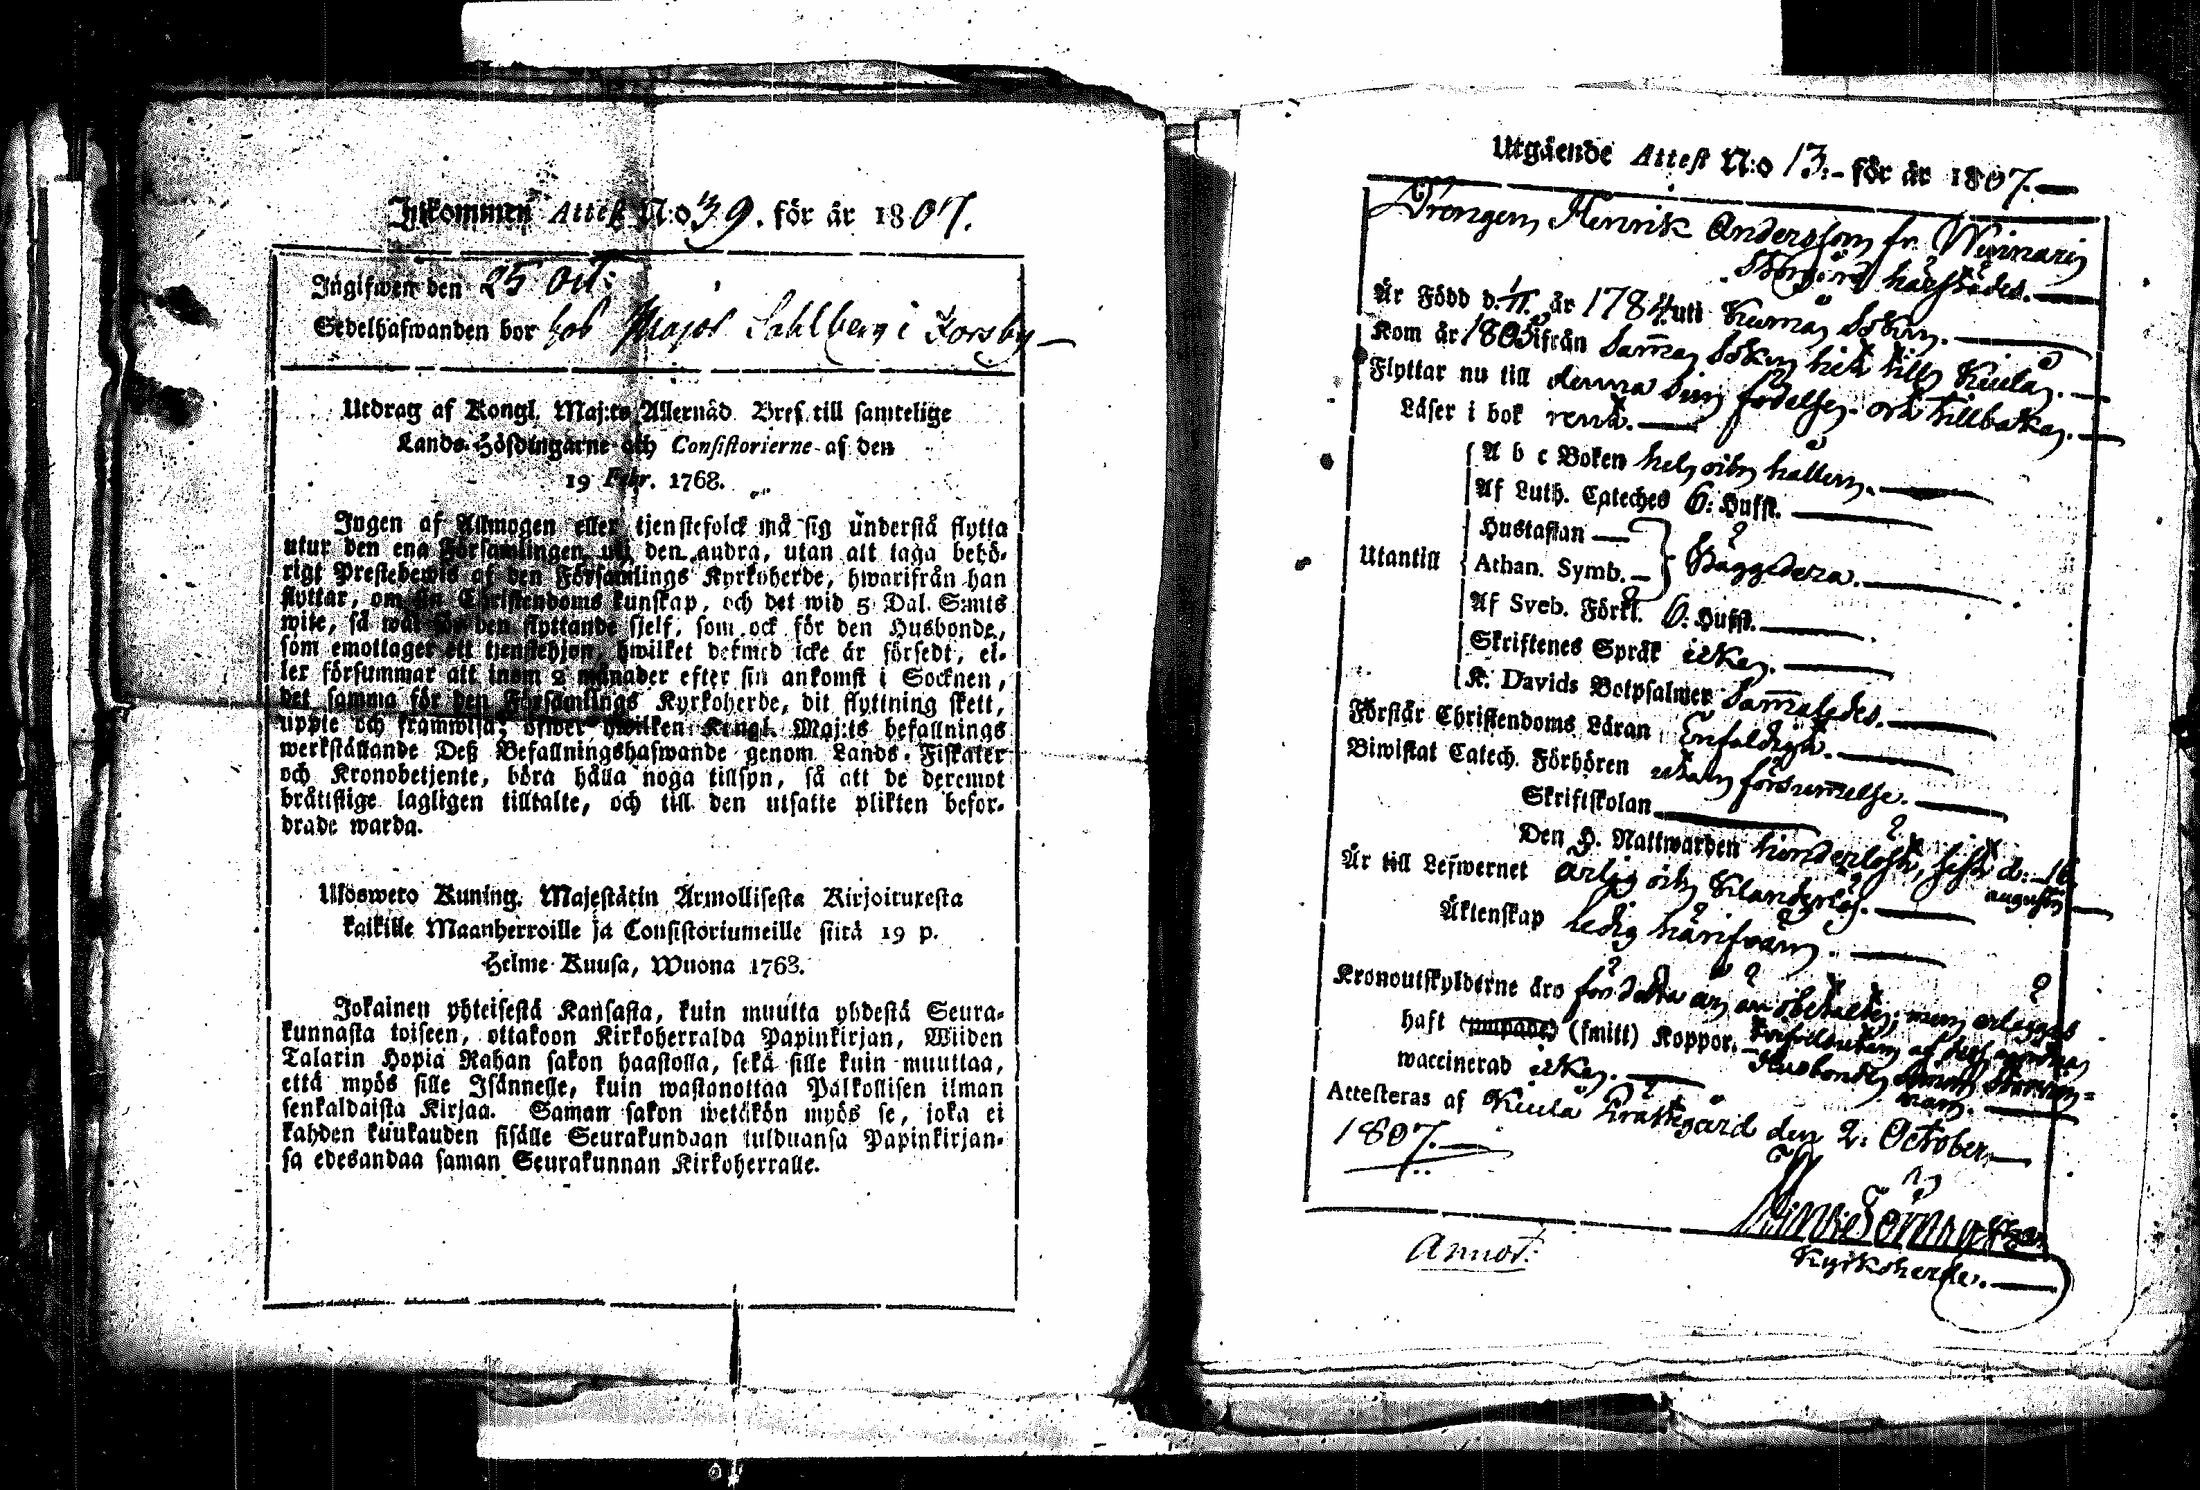 Inkommen Attest N:o 39. för år 1807.
Ingifwen den 25 Oct:
Sedelhafwanden bor hos Major Sahlberg i Forsby
Utdrag af Kongl. Maj:ts Allernåd. Bref till samtelige
Lands-Höfdingarne och Consistorierne af den
19 Febr. 1768.
Ingen af Allmogen eller tjenstefolck må sig understå flytta
utur den ena Församlingen uti den andra, utan att taga behö-
rigt Prestebewis af den Församlings Kyrkoherde, hwarifrån han
flyttar, om sin Christendoms kunskap, och det wid 5 Dal. S:mts
wite, så wäl för den flyttande sjelf, som ock för den Husbonde,
som emottager ett tjenstehjon, hwilket dermed icke är försedt, el-
ler försummar att inom 2 månader efter sin ankomst i Socknen,
det samma för den Församlings Kyrkoherde, dit flyttning skett,
uppte och framwisa; öfwer hwilken Kongl. Maj:ts befallnings
werkställande Deß Befallningshafwande genom Lands-Fiskaler
och Kronobetjente, böra hålla noga tillsyn, så att de deremot
bråttslige lagligen tilltalte, och till den utsatte plikten befor-
drade warda.
Ulösweto Kuning. Majestätin Armollisesta Kirjoituxesta
kaikille Maanherroille ja Consistoriumeille siitä 19 p.
Helme-Kuusa, Wuona 1768.
Jokainen yhteisestä Kansasta, kuin muutta yhdestä Seura-
kunnasta toiseen, ottakoon Kirkoherralda Papinkirjan, Wiiden
Talarin Hopia Rahan sakon haastolla, sekä sille kuin muuttaa,
että myös sille Isännelle, kuin wastanottaa Palkollisen ilman
senkaldaista Kirjaa. Saman sakon wetäkön myös se, joka ei
kahden kuukauden sisälle Seurakundaan tulduansa Papinkirjan-
sa edesandaa saman Seurakunnan Kirkoherralle.
Utgående Attest N:o 13. för år 1807.
Drengen Henrik Andersson fr. Winnari
härstädes.
År Född d. 1/11 år 1784 uti Kumå Sokn.
Kom år 1805 ifrån Samma Sokn hit till Kiula.
Flyttar nu till denna sin födelse ort tillbaka.
Läser i bok rent.
Utantill
A b c Boken hel och hållen.
Af Luth. Cateches 6: Hufst.
Hustaflan
Athan. Symb. Bäggedera.
Af Sveb. Förkl. 6: Hufst.
Skriftenes Språk icke.
K. Davids Botpsalmer Sammaledes.
Förstår Christendoms Läran Enfaldigt.
Biwistat Catech. Förhören utan försummelse.
Skriftskolan
Den H. Nattwarden hinderlöst, sist d: 16
augusti
Är till Lefwernet ärlig och Klanderlös.
Äktenskap ledig härifrån.
Kronoutskylderne äro för detta år obetalte; men erlägges
haft (smitt) Koppor. af dess
waccinerad icke. Husbonde
Attesteras af Kiula Prästgård den 2: October
1807.
Kyrkoherde.
Annot: